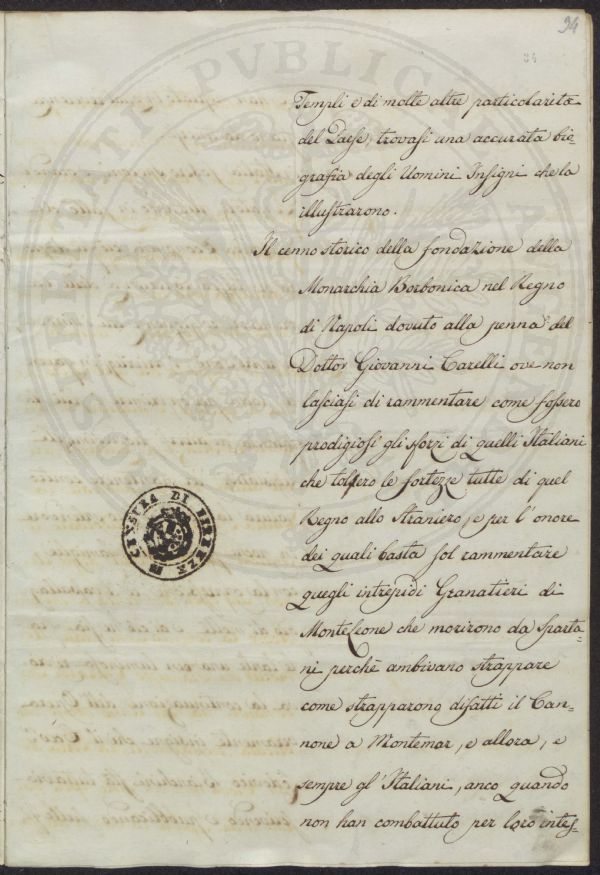 94
Templi e di molte altre particolarità
del Paese, trovasi una accurata bio=
grafia degli Uomini Insigni che la
illustrarono.
Il cenno storico della fondazione della
Monarchia Borbonica nel Regno
di Napoli dovuto alla penna del
Dottor Giovanni Carelli ove non
lasciasi di rammentare come fossero
prodigiosi gli sforzi di quelli Italiani
che tolsero le fortezze tutte di quel
Regno allo Straniero, e per l'onore
dei quali basta sol rammentare
quegli intrepidi Granatieri di
Monteleone che morirono da Sparta=
ni perchè ambivano strappare
come strapparono difatti il Can=
none a Montemar, e allora, e
sempre gl'Italiani, anco quando
non han combattuto per loro intes=
CENSURA DI FIRENZE